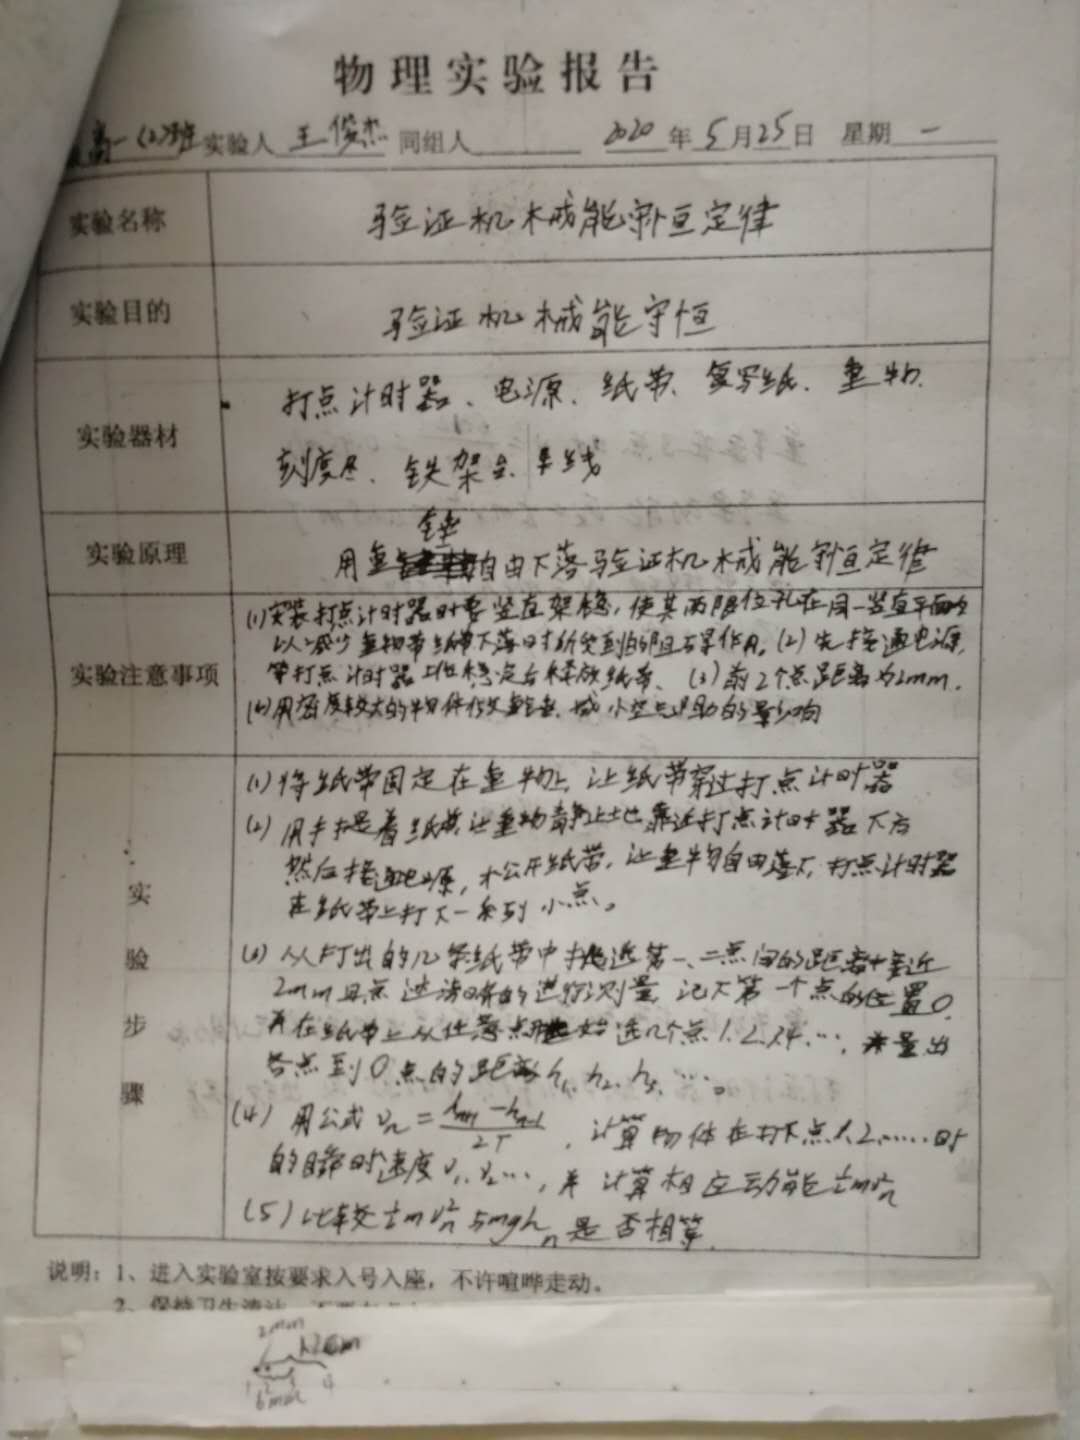 物理实验报告
高一(2)班 实验人 王俊杰 同组人 2020年5月25日 星期一
实验名称 验证机械能守恒定律
实验目的 验证机械能守恒
实验器材 打点计时器、电源、纸带、复写纸、重物、
刻度尺、铁架台、导线
锤
实验原理 用重自由下落验证机械能守恒定律
(1)安装打点计时器时要竖直架稳,使其两限位孔在同一竖直平面内
以减少重物带纸带下落时所受到的阻力作用。(2)先接通电源,
实验注意事项 等打点计时器工作稳定后释放纸带、(3)前2个点距离为2mm.
(4)用密度较大的物体作重锤、减小空气阻力的影响
实验步骤
(1)将纸带固定在重物上,让纸带穿过打点计时器
(2)用手提着纸带让重物静止地靠近打点计时器下方
然后接通电源,松开纸带,让重物自由落下,打点计时器
在纸带上打下一系列小点。
(3)从打出的几条纸带中挑选第一、二点间的距离十接近
2mm且点迹清晰的进行测量,记下第一个点的位置0,
再在纸带上从任意点开始选几个点1.2.3.4...,并量出
各点到0点的距离h₁、h₂、h₃、....。
(4)用公式vₙ=(hₙ₊₁-hₙ₋₁)/2T,计算物体在打下点1.2......时
的瞬时速度v₁、v₂...,并计算相应动能½mvₙ²
(5)比较½mvₙ²与mghₙ是否相等.
说明:1、进入实验室按要求入号入座,不许喧哗走动。
2、保持卫生清洁
2mm
1 2 3 4
6mm